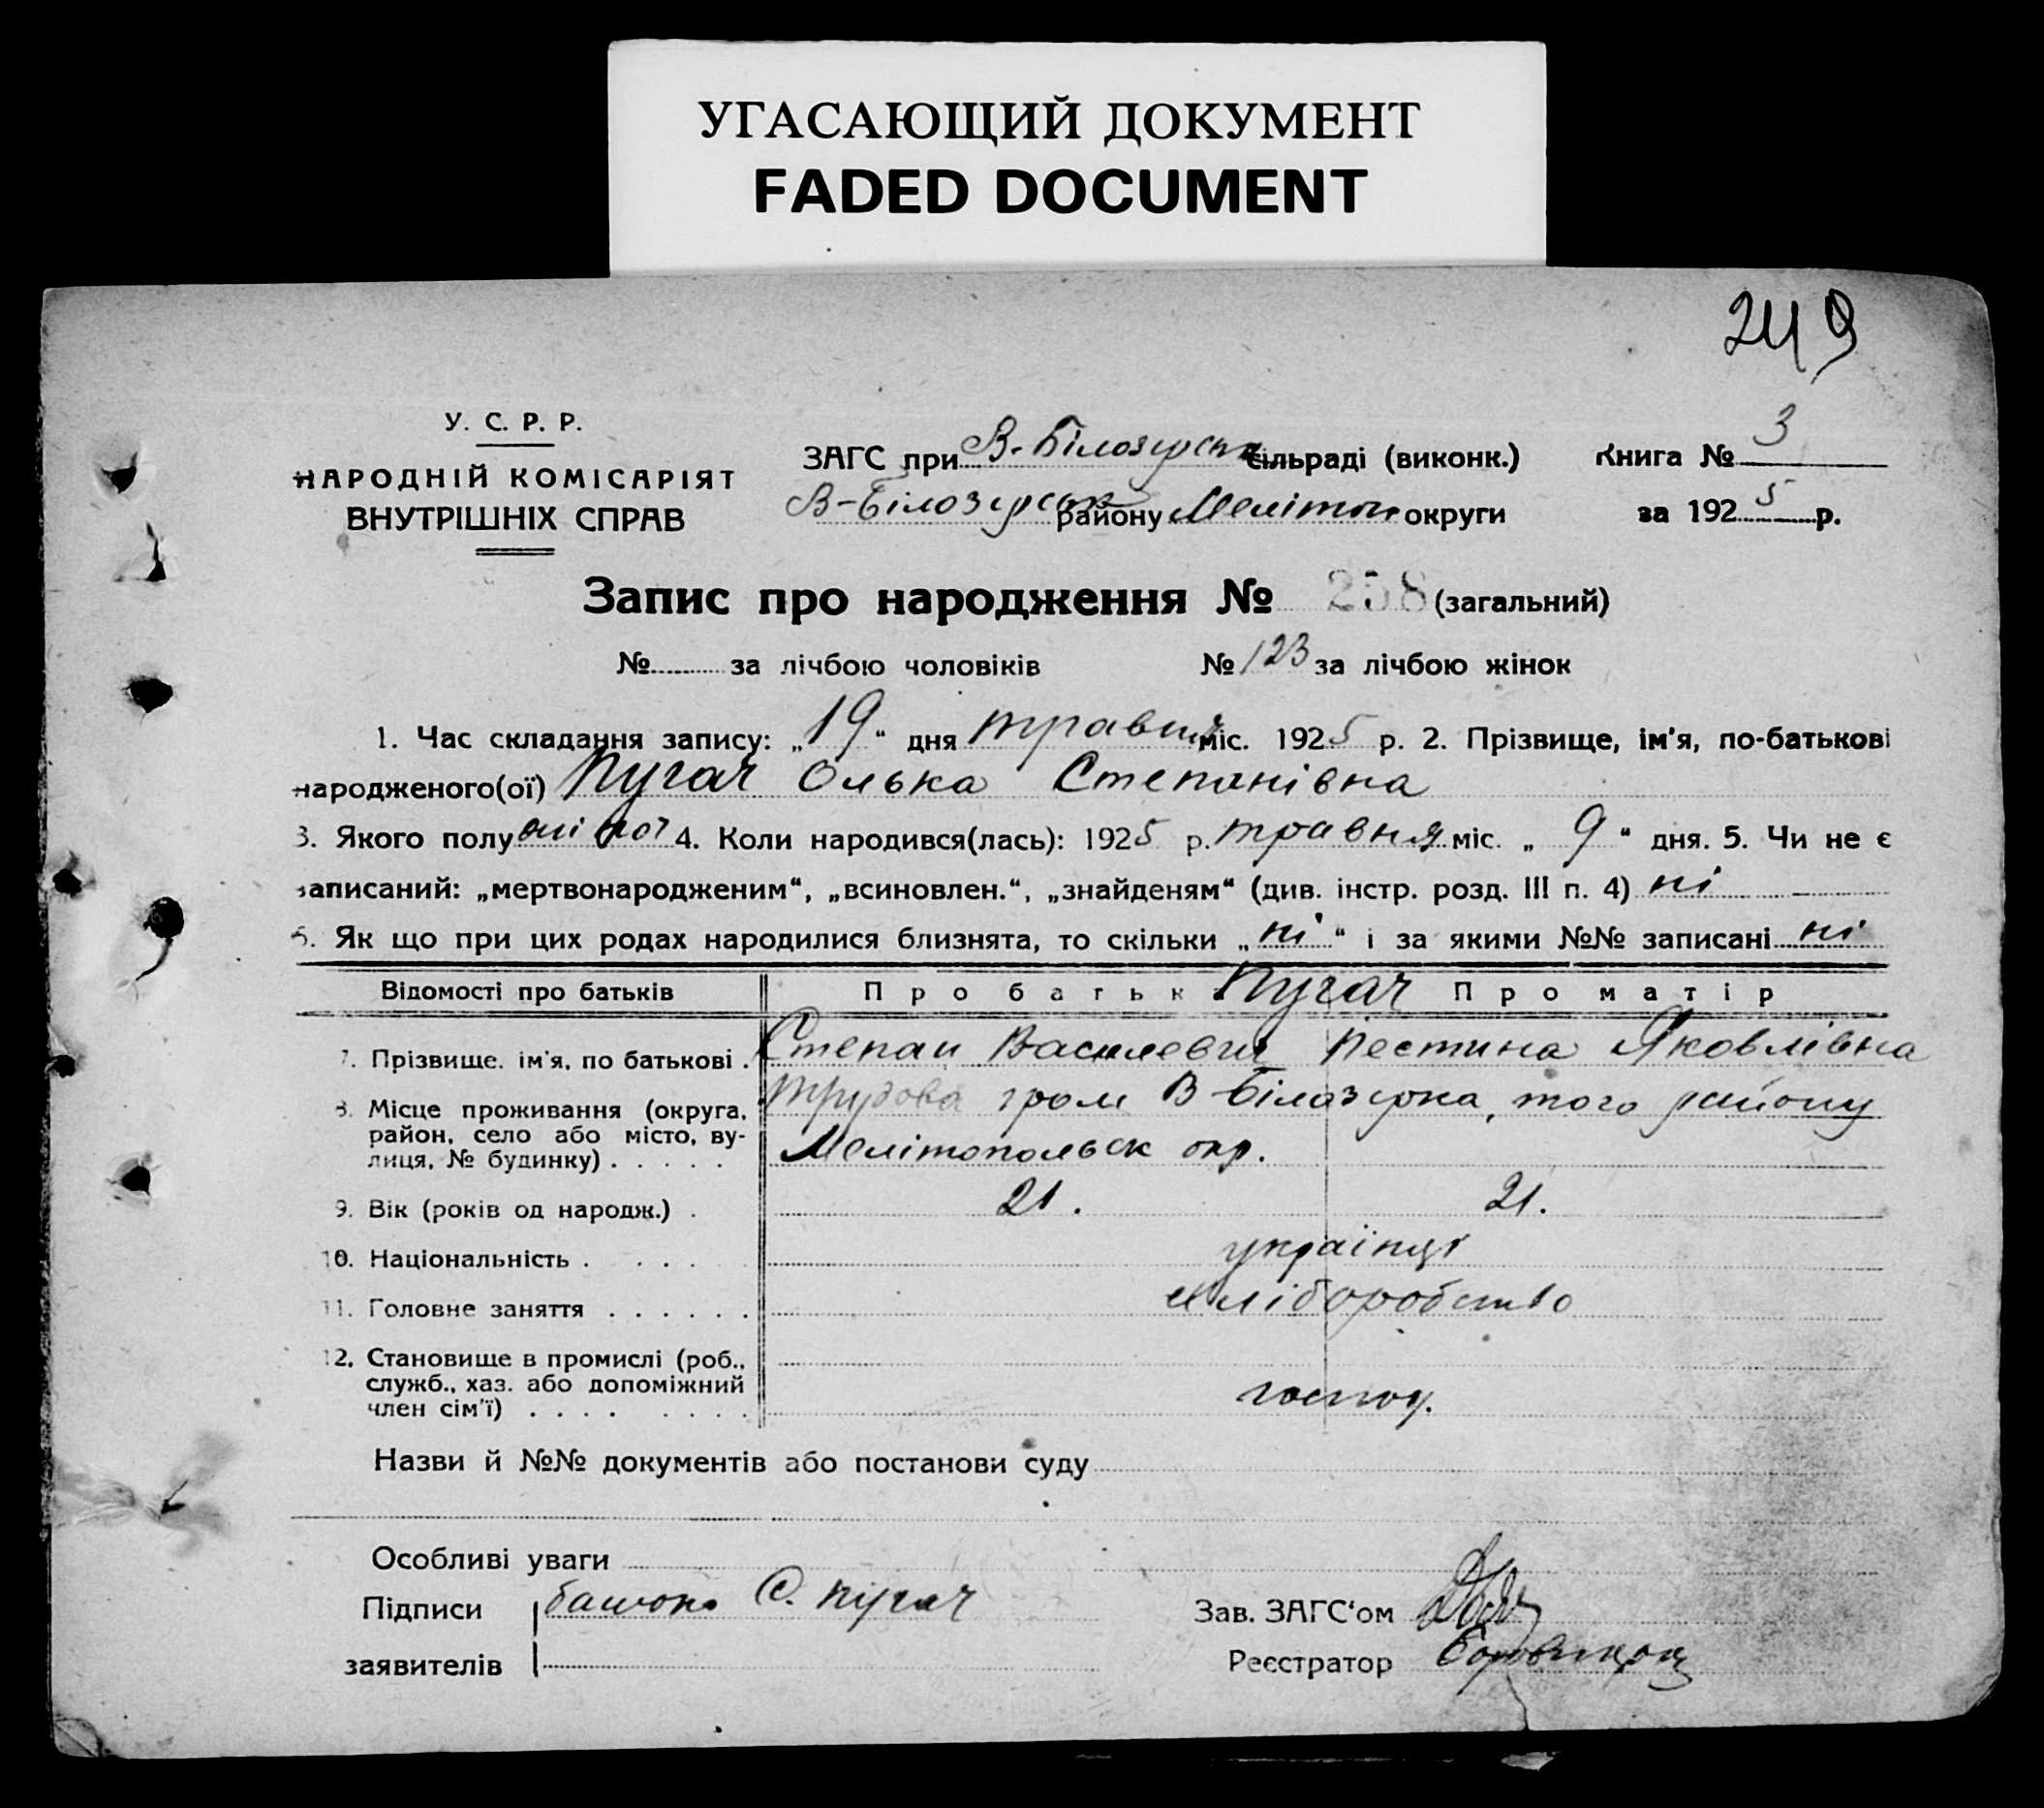 УГАСАЮЩИЙ ДОКУМЕНТ
FADED DOCUMENT
249
У. С. Р. Р.
НАРОДНІЙ КОМІСАРІЯТ
ВНУТРІШНІХ СПРАВ
ЗАГС при В-Білозерск сільраді (виконк.) Книга № 3
В-Білозерськ району Меліто округи за 1925 р.
Запис про народження № 258 (загальний)
№ за лічбою чоловіків № 123 за лічбою жінок
1. Час складання запису: „19“ дня травня міс. 1925 р. 2. Прізвище, ім'я, по-батькові
народженого(ої) Пугач Олька Степанівна
3. Якого полу 4. Коли народився(лась): 1925 р. травня міс. „9“ дня. 5. Чи не є
записаний: „мертвонародженим“, „всиновлен.“, „знайденям“ (див. інстр. розд. III п. 4) ні
6. Як що при цих родах народилися близнята, то скільки „ні“ і за якими №№ записані ні
Відомості про батьків Про батьк Пугач Про матір
7. Прізвище, ім'я, по батькові . Степан Василевич Пестина Яковлівна
8. Місце проживання (округа, район, село або місто, вулиця, № будинку) . . . . . Трудова гром В-Білазерка, того району
Мелітопольск окр.
9. Вік (років од народж.) . 21. 21.
10. Національність . . . . . українці
11. Головне заняття . . . . . . хліборобство
12. Становище в промислі (роб.,
служб., хаз. або допоміжний
член сім'ї) . . . . . . . . господ.
Назви й №№ документів або постанови суду
Особливі уваги
Підписи батько С. Пугач Зав. ЗАГС‘ом
заявителів Реєстратор